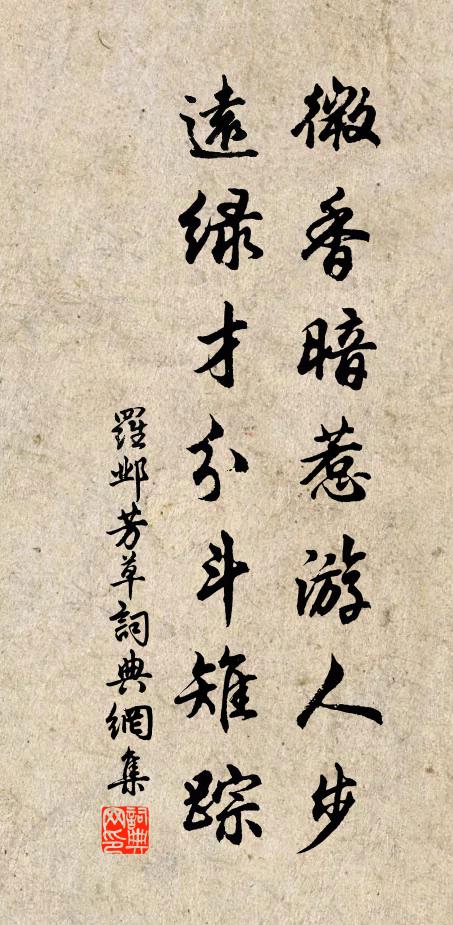 微香暗惹游人步
遠绿才分斗雉踪
羅邺芳草詞典網集
詞典网印